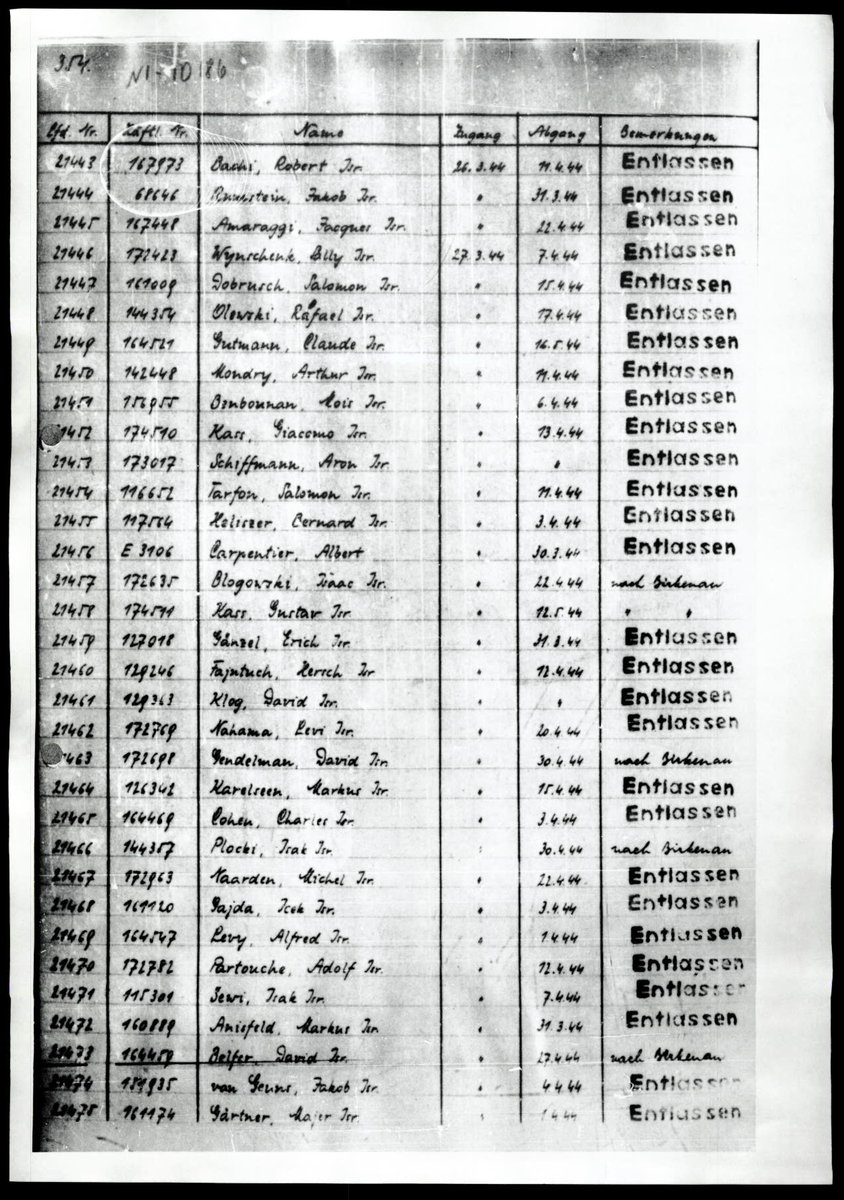 354. NI-10186
Lfd. Nr. Häftl. Nr. Name Zugang Abgang Bemerkungen
21443 167973 Bachi, Robert Isr. 26.3.44 11.4.44 Entlassen
21444 68646 Rubinstein, Jakob Isr. " 31.3.44 Entlassen
21445 167448 Amaraggi, Jacques Isr. " 22.4.44 Entlassen
21446 172423 Wynschenk, Elly Isr. 27.3.44 7.4.44 Entlassen
21447 161009 Dobrusch, Salomon Isr. " 15.4.44 Entlassen
21448 144354 Olewski, Rafael Isr. " 17.4.44 Entlassen
21449 164521 Gutmann, Claude Isr. " 16.5.44 Entlassen
21450 142448 Mondry, Arthur Isr. " 11.4.44 Entlassen
21451 156955 Benbounan, Mois Isr. " 6.4.44 Entlassen
21452 174510 Kass, Giacomo Isr. " 13.4.44 Entlassen
21453 173017 Schiffmann, Aron Isr. " " Entlassen
21454 116652 Tarfon, Salomon Isr. " 11.4.44 Entlassen
21455 117564 Heliszer, Bernard Isr. " 3.4.44 Entlassen
21456 E 3106 Carpentier, Albert " 30.3.44 Entlassen
21457 172635 Blogowski, Isaac Isr. " 22.4.44 nach Birkenau
21458 174511 Kass, Gustav Isr. " 12.5.44 " "
21459 127018 Gänzel, Erich Isr. " 31.3.44 Entlassen
21460 129246 Fajntuch, Hersch Isr " 12.4.44 Entlassen
21461 129363 Klog, David Isr. " " Entlassen
21462 172769 Nahama, Levi Isr. " 20.4.44 Entlassen
21463 172698 Gendelman, David Isr. " 30.4.44 nach Birkenau
21464 126342 Karelseen, Markus Isr. " 15.4.44 Entlassen
21465 164469 Cohen, Charles Isr. " 3.4.44 Entlassen
21466 144357 Plocki, Isak Isr. " 30.4.44 nach Birkenau
21467 172963 Naarden, Michel Isr. " 22.4.44 Entlassen
21468 161120 Gajda, Icek Isr. " 3.4.44 Entlassen
21469 164547 Levy, Alfred Isr. " 1.4.44 Entlassen
21470 172782 Partouche, Adolf Isr. " 12.4.44 Entlassen
21471 115301 Sewi, Isak Isr. " 7.4.44 Entlassen
21472 160889 Anisfeld, Markus Isr. " 31.3.44 Entlassen
21473 164459 Belfer, David Isr. " 27.4.44 nach Birkenau
21474 151935 van Geuns, Jakob Isr. " 4.4.44 Entlassen
21475 161174 Gärtner, Majer Isr. " 1.4.44 Entlassen